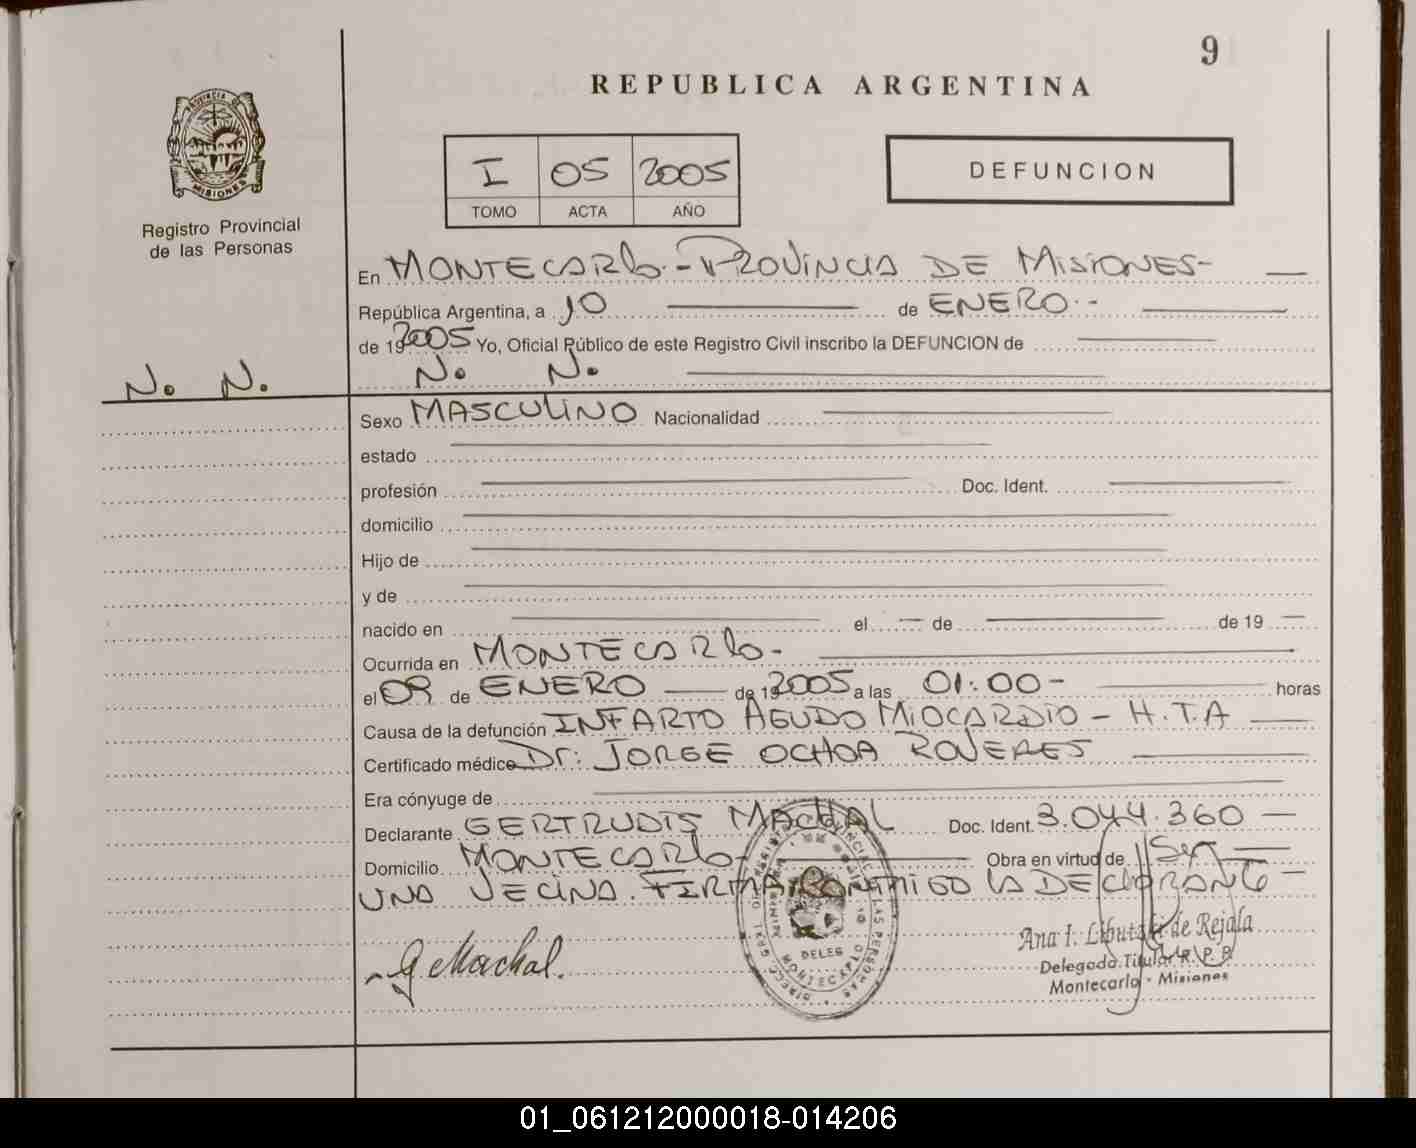 9
REPUBLICA ARGENTINA
PROVINCIA DE MISIONES
Registro Provincial
de las Personas
I 05 2005
TOMO ACTA AÑO
DEFUNCION
En MONTECARLO.- PROVINCIA DE MISIONES-
República Argentina, a 10 de ENERO.-
de 192005 Yo, Oficial Público de este Registro Civil inscribo la DEFUNCION de
N. N.
N. N.
Sexo MASCULINO Nacionalidad
estado
profesión Doc. Ident.
domicilio
Hijo de
y de
nacido en el de de 19
Ocurrida en MONTECARLO-
el 09 de ENERO de 192005 a las 01:00- horas
Causa de la defunción INFARTO AGUDO MIOCARDIO - H.T.A
Certificado médico Dr: JORGE OCHOA ROVERES
Era cónyuge de
Declarante GERTRUDIS MACHAL Doc. Ident. 3.044.360
Domicilio MONTECARLO- Obra en virtud de Ser
UNA VECINA. FIRMA CONMIGO LA DECLARANTE-
G Machal.
DELEG
MONTECARLO
Ana I. de Rejala
Delegada Titular R. P. P.
Montecarlo - Misiones
01_061212000018-014206